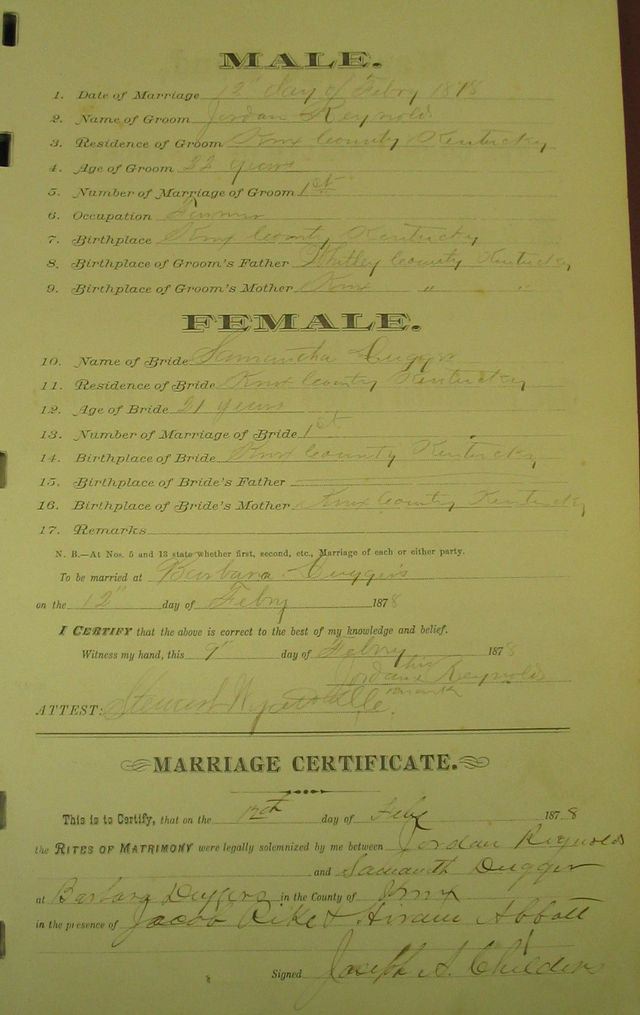 MALE.
1. Date of Marriage 12" day of Febry 1878
2. Name of Groom Jordan Reynolds
3. Residence of Groom Knox County Kentucky
4. Age of Groom 22 years
5. Number of Marriage of Groom 1st
6. Occupation Farmer
7. Birthplace Knox County Kentucky
8. Birthplace of Groom's Father Whitley County Kentucky
9. Birthplace of Groom's Mother Knox " "
FEMALE.
10. Name of Bride Samantha Duggar
11. Residence of Bride Knox County Kentucky
12. Age of Bride 21 years
13. Number of Marriage of Bride 1st
14. Birthplace of Bride Knox County Kentucky
15. Birthplace of Bride's Father
16. Birthplace of Bride's Mother Knox County Kentucky
17. Remarks
N. B.—At Nos. 5 and 13 state whether first, second, etc., Marriage of each or either party.
To be married at Barbara Duggers
on the 12" day of Febry 1878
I CERTIFY that the above is correct to the best of my knowledge and belief.
Witness my hand, this 9" day of Febry 1878
his
Jordan Reynolds
mark
ATTEST:
MARRIAGE CERTIFICATE.
This is to Certify, that on the 12th day of Feby 1878
the RITES OF MATRIMONY were legally solemnized by me between Jordan Reynolds
and Samanth Dugger
at Barbara Duggers in the County of Knox
in the presence of Jacob Rike & Hiram Abbott
Signed Joseph A. Childers